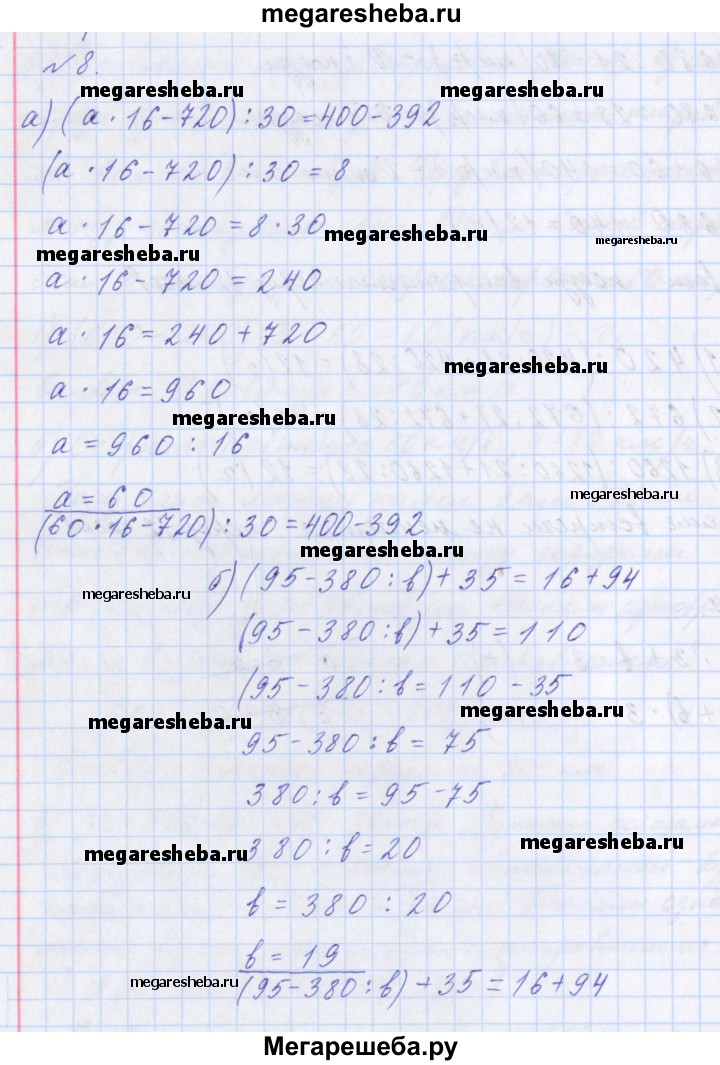 megaresheba.ru
№8.
megaresheba.ru megaresheba.ru
а) (а·16-720):30=400-392
(а·16-720):30=8
а·16-720=8·30
megaresheba.ru megaresheba.ru
megaresheba.ru
а·16-720=240
а·16=240+720
megaresheba.ru
а·16=960
megaresheba.ru
а=960:16
а=60
megaresheba.ru
(60·16-720):30=400-392
megaresheba.ru
б) (95-380:в)+35=16+94
megaresheba.ru
(95-380:в)+35=110
(95-380:в=110-35
megaresheba.ru
megaresheba.ru
95-380:в=75
380:в=95-75
megaresheba.ru
380:в=20
megaresheba.ru
в=380:20
в=19
megaresheba.ru megaresheba.ru
(95-380:в)+35=16+94
Мегарешеба.ру